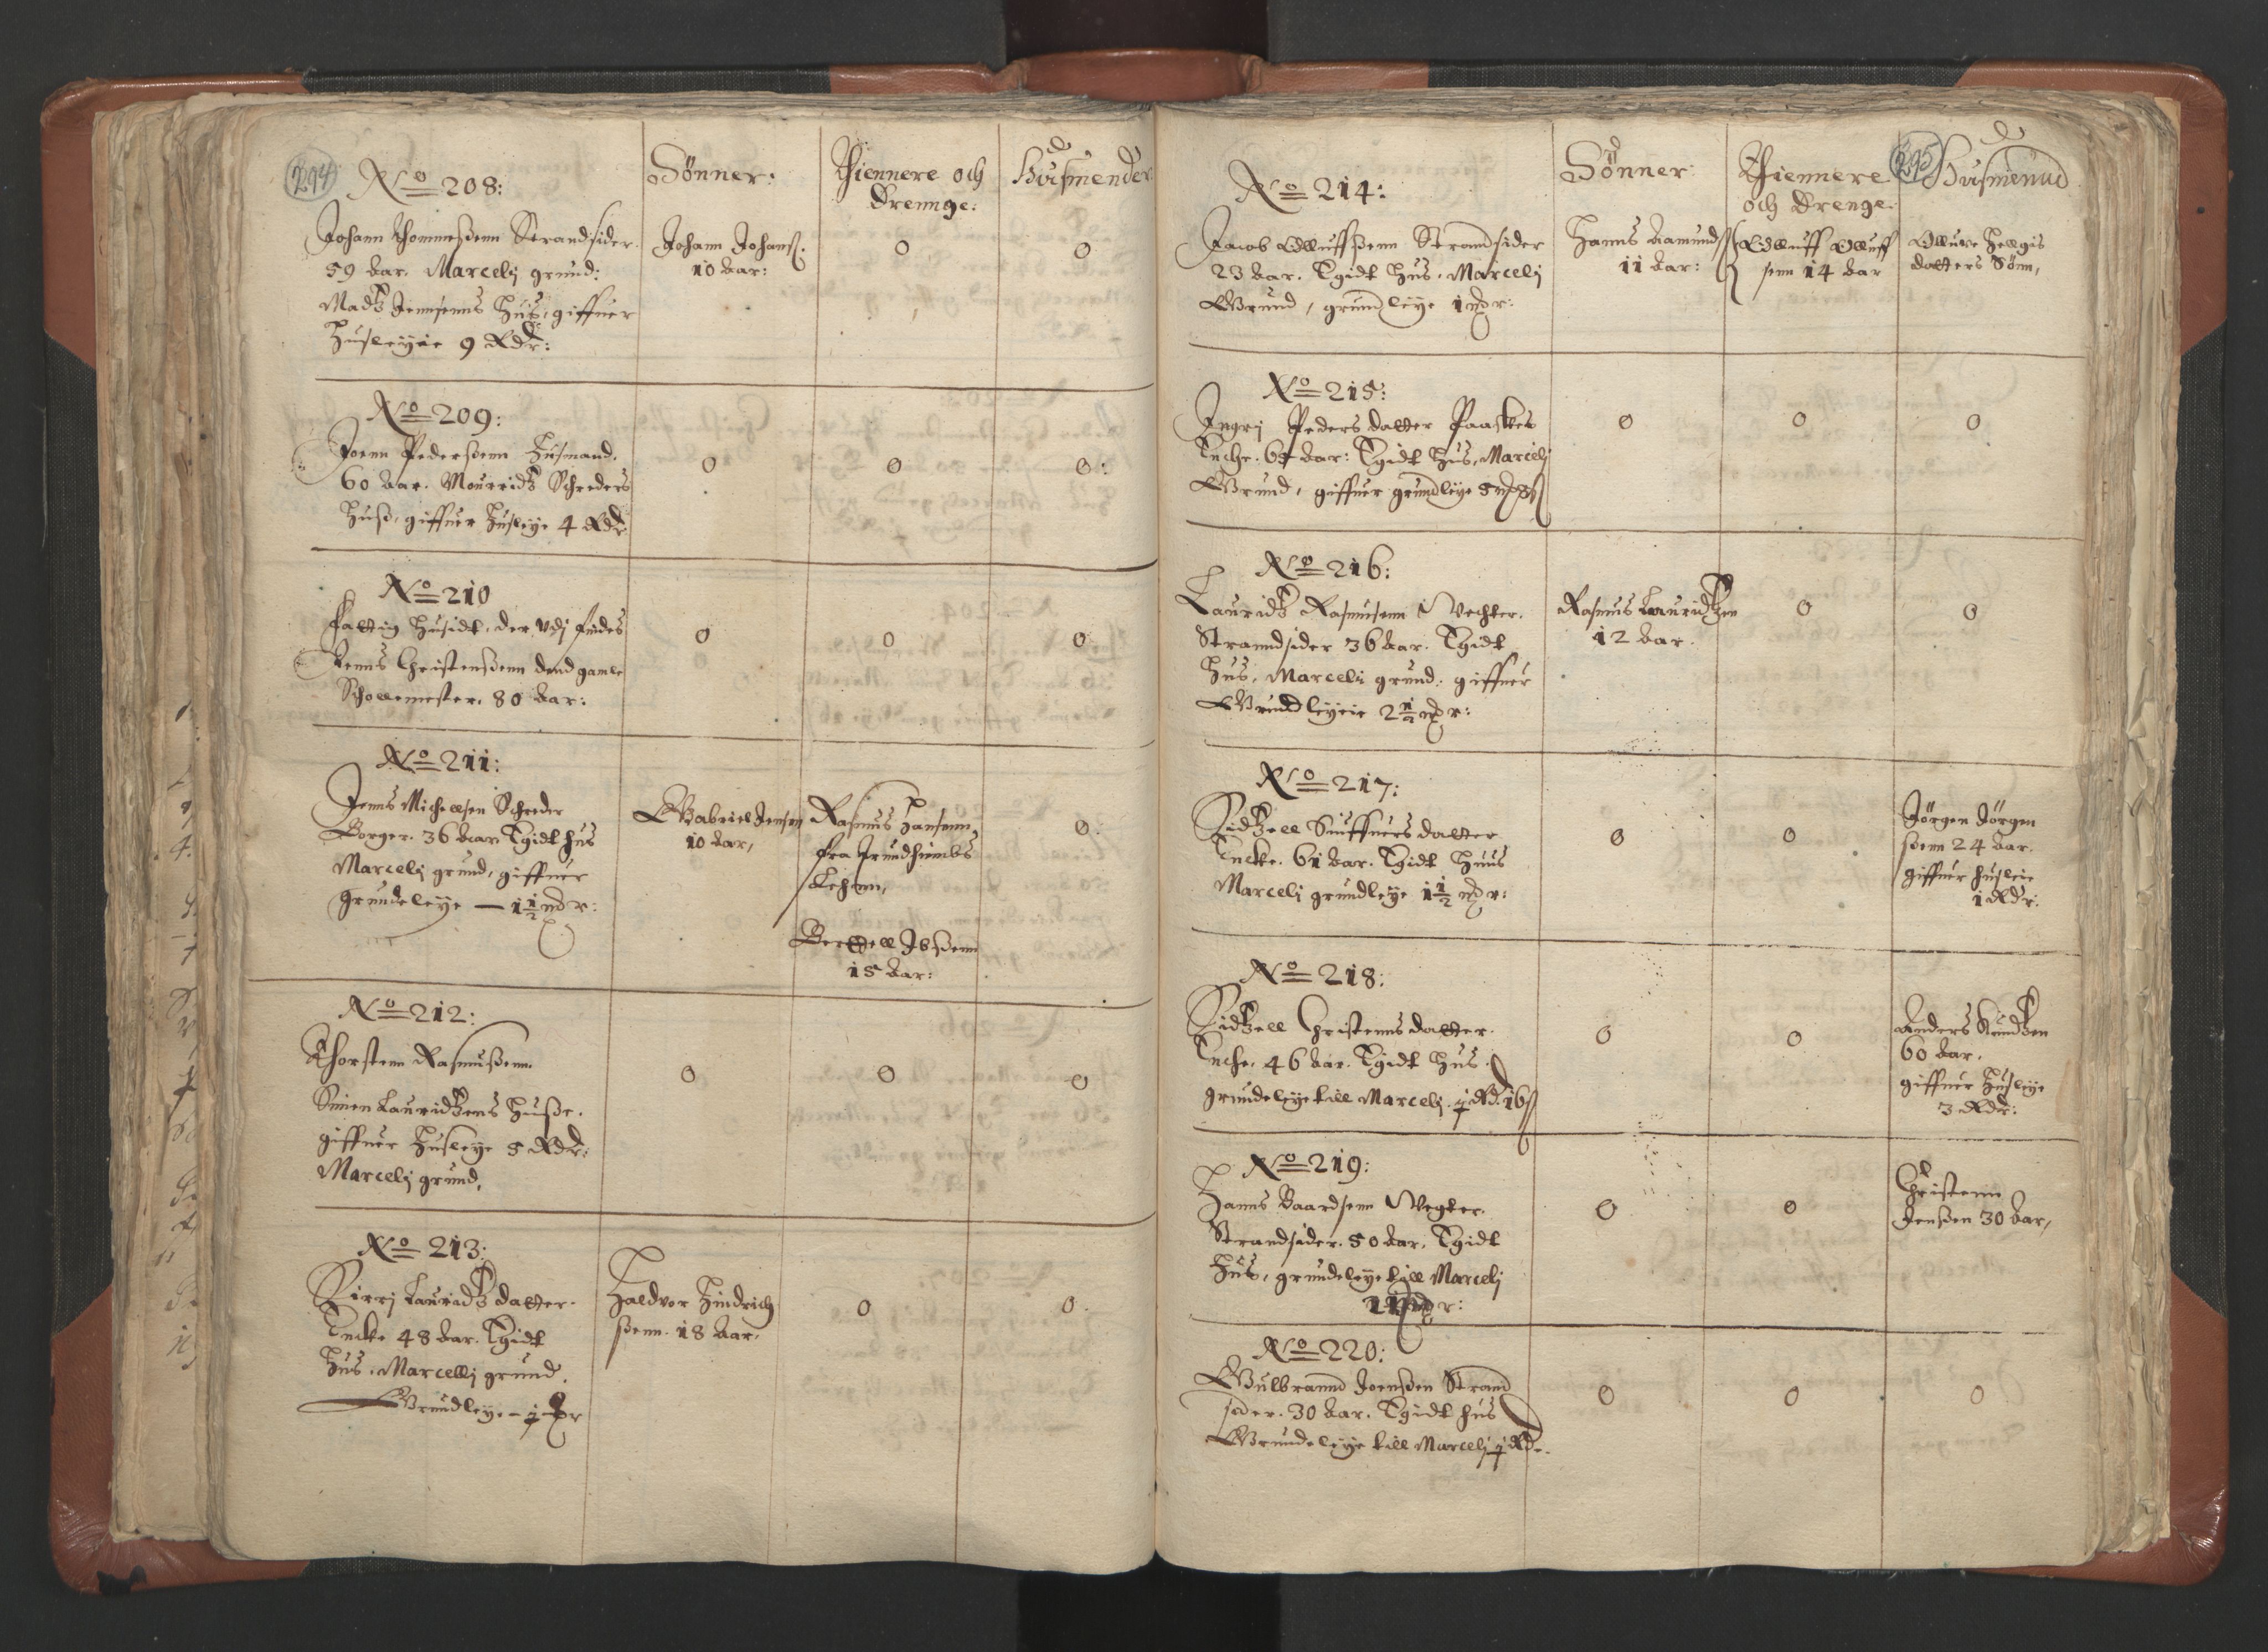 294
No 208:
Sönner:
Thiennere och
Drennge:
Husmender
Johann Thommeßenn Strandsider.
59 Aar. Marcelj grund:
Madtz Jennsenns Hus, giffuer
Husleyie 9 Rdr:
Johann Johanß:
10 Aar:
0
0
No 209:
Joenn Pederßenn Husmand.
60 Aar. Mouridtz Schreders
Huß, giffuer Husleye 4 Rdr
0
0
0:
No 210
Fattig Husidt, der Udj findes
Jenns Christenßenn dend gamle
Scholemester. 80 Aar:
0
0
0
No 211:
Jenns Michelsen Schreder
Borger. 36 Aar Egidt hus
Marcelj grund, giffuer
Grundeleye — 1½ r:
Gabriel Jensen
10 Aar,
Rasmus Hansenn,
fra Trundhiembs
Lehenn,
Berttell Ibßenn
15 Aar:
0:
No 212:
Thorstenn Rasmußenn.
Simen Lauridtzens Huße.
giffuer Husleye 5 Rdr:
Marcelj grund,
0
0
0
No 213:
Sirrj Lauridtz datter.
Encke 48 Aar. Egidt
Hus. Marcellj grund.
Grundleye – 1 r
Haldvor Hindrich
ßenn. 18 Aar.
0
0.
295
No 214:
Sönner:
Thiennere
och Drenge:
Husmennd
Jacob Olluffßenn Strandsider
23 Aar. Egidt Hus. Marcelj
Grund, grundleye 1 r:
Hanns Aamundß
11 Aar:
Olluff Olluff
senn 14 Aar
Olluve Hellgis
datters Sönn,
No 215:
Ingrj Peders datter Paaskes
Enche. 64 Aar: Egidt Hus, Marcelj
Grund, giffuer grundleye 5
0
0
0
No 216:
Lauridtz Rasmusenn Vechter.
Stranndsider 36 Aar. Egidt
Hus, Marcelii grund. giffuer
Grundleyeie 2½ r:
Rasmus Lauridtzen
12 Aar.
0
0
No 217:
Sidtzell Siuffuersdatter
Encke. 61 Aar. Egidt Huus
Marcelj grundleye 1½ r:
0
0
Jörgen Jörgen
ßenn 24 Aar.
giffuer husleie
1 Rdr:
No 218:
Sidtzell Christennsdatter.
Enche. 46 Aar. Egidt Hus.
grundeleye till Marcelj. 1 Rd. 16 ß
0
0
Anders Knudtzen
60 Aar.
giffuer Husleye
3 Rdr:
No 219:
Hanns Baardsenn Vegter.
Strandsider. 50 Aar. Egidt
Hus, grundeleye till Marcelj
0
0
Christenn
Jenßen 30 Aar,
No 220:
Gulbrannd Joenßen Strand
sider. 30 Aar. Egidt hus
Grundeleye till Marcelj 1 Rdr.
0
0
0